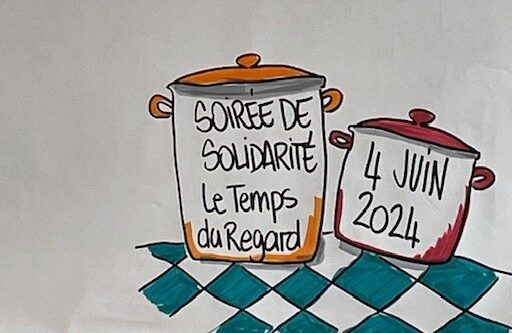 SOIREE DE
SOLIDARITÉ
Le Temps
du Regard
4 JUIN
2024